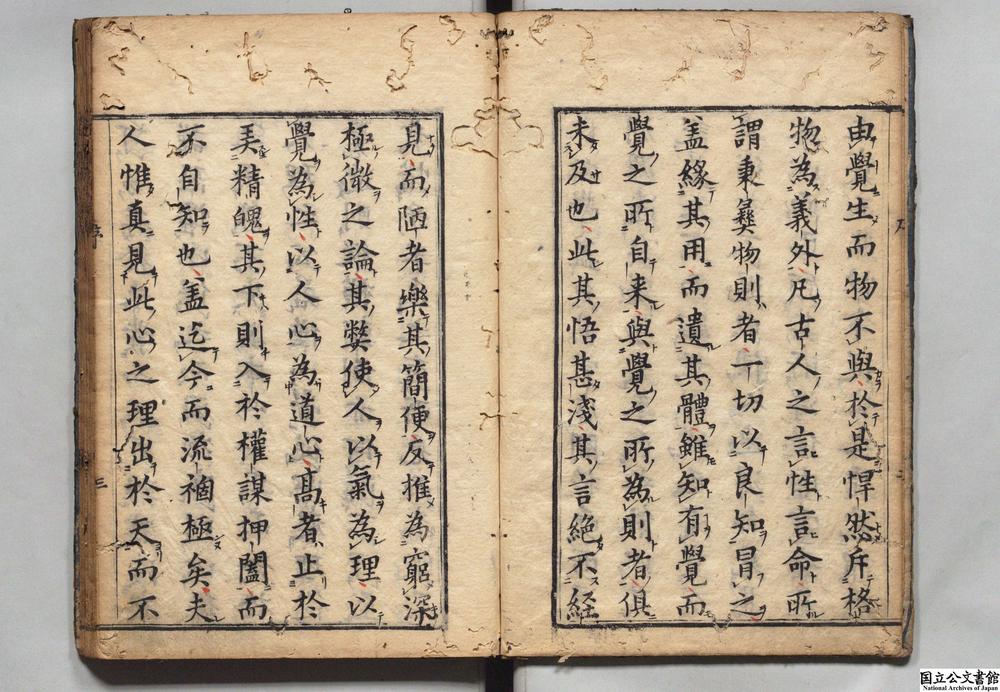 由覺生而物不與於是悍然斥格
物為義外凡古人之言性言命所
謂秉彝物則者一切以良知冒之
盖緣其用而遺其體雖知有覺而
覺之所自来與覺之所為則者俱
未及也此其悟甚淺其言絶不経
見而陋者樂其簡便反推為窮深
極微之論其弊使人以氣為理以
覺為性以人心為道心高者止於
美精魄其下則入於權謀押闔而
不自知也盖迄今而流禍極矣夫
人惟真見此心之理出於天而不
序
三
国立公文書館
National Archives of Japan